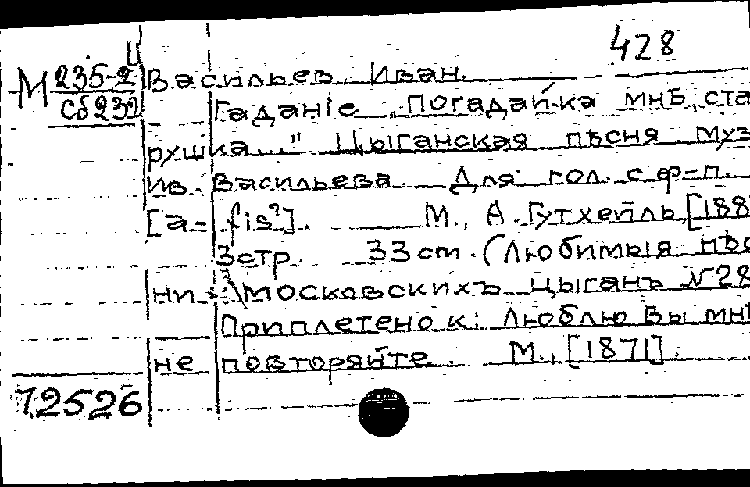 428
М 235-2 Васильев Иван.
Сб 239
Гаданіе „Погадай-ка мнѣ, ста
рушка..." Цыганская пѣсня муз
Ив. Васильева Для гол. с ф-п.
[a- fis²]. М., А. Гутхейль, [188
3стр. 33 cm. (Любимыя пѣс
ни московскихъ цыганъ № 28
Приплетено к: Люблю Вы мнѣ
не повторяйте. М., [1871].
72526